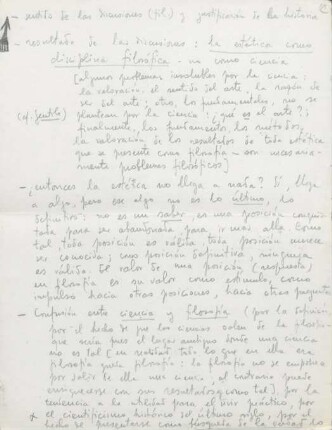 - sentido de las discusiones (fil.) y justificación de la historia
- resultado de las discusiones: la estética como
disciplina filosófica - no como ciencia
(algunos problemas insolubles por la ciencia:
la valoración, el sentido del arte, la razón de
ser del arte; otros, los fundamentales, no se
(cf. Gentile) plantean por la ciencia: ¿qué es el arte?;
finalmente, los fundamentos, los métodos,
la valoración de los resultados de toda estética
que se presente como filosofía - son necesaria-
mente problemas filosóficos)
- ¿entonces la estética no llega a nada? Sí, llega
a algo, pero ese algo no es lo último, lo
definitivo: no es un saber, es una posición conquis-
tada para ser abandonada para ir más allá. Como
tal toda posición es válida, toda posición merece
ser conocida; como posición definitiva, ninguna
es válida. El valor de una posición (respuesta)
en filosofía es su valor como estímulo, como
impulso hacia otras posiciones, hacia otras preguntas
- Confusión entre ciencia y filosofía (por la
por el hecho de que las ciencias salen de la filosofía
que sería pues el lugar antiguo donde una ciencia
no es tal (en realidad todo lo que en ella era
filosofía queda filosofía: la filosofía no se empobrece
por salir de ella una ciencia, al contrario puede
enriquecerse con sus resultados como tal), por la
tendencia a la utilidad para el vivir práctico, por
el cientificismo histórico del último siglo, por el
hecho de presentarse como búsqueda de la